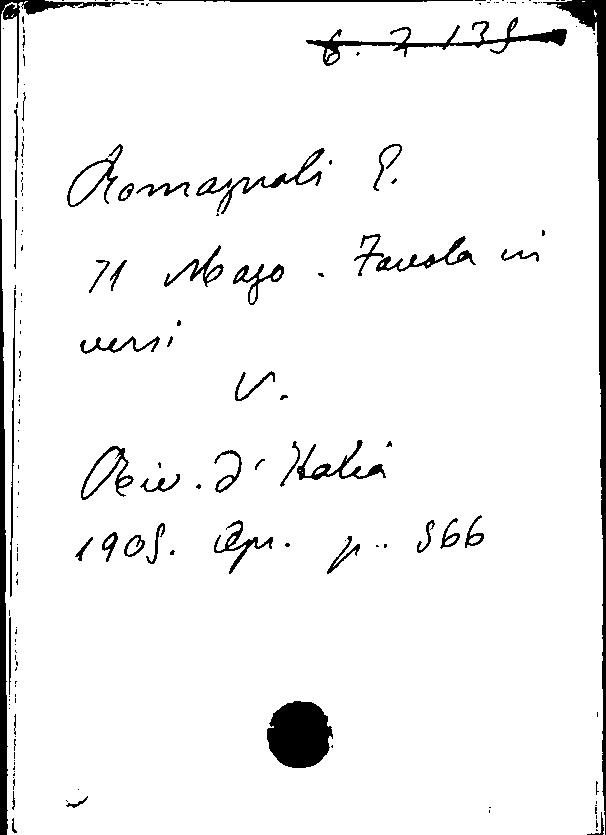 6. 2 135
Romagnoli E.
Il Mago. Favola in
versi
V.
Riv. d'Italia
1905. Apr. p. 566